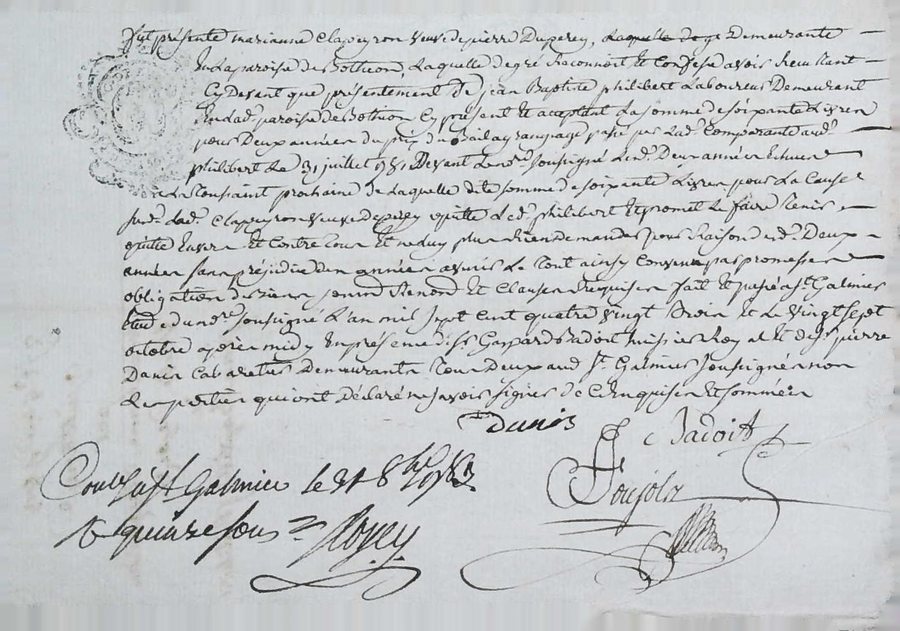 fut présente marianne Clapeyron veuve de pierre Duperey, Laquelle Demeurante
En La paroise de Bothéon, Laquelle de gré Reconnoit Et Confese avoir Receu tant
Cy Devant que présentement De jean Baptiste philibert Laboureur Demeurant
En Lad. paroise de Bothion Cy présent Et acceptant La somme de soixante Livres
pour Deux année du prix du Bail a grangeage pasé par Lad. Comparante aud.
philibert Le 31 juillet 1781 Devant Le no.re soussigné Lesd. Deux années Echeues
a La toussaint prochaine De Laquelle dite somme de soixante Livres pour La Cause
susd. Lad. Clapeyron veuve Deperey quitte Led. philibert Et promet Le faire tenir
quitte Envers Et Contre tous Et ne Luy plus Rien Demander pour Raison desd. Deux
années sans préjudice des années a venir Le tout ainsy Convenu par promesse
obligation de biens soumis Renon.d Et Clauses Requises fait Et pasé a St. Galmier
Etude du no.re soussigné L'an mil sept cent quatre vingt trois Et Le vingt sept
octobre après midy En présence de sr. Gaspard Badoit huissier Royal Et de sr. pierre
Danis Cabaretier Demeurants tous Deux aud. St. Galmier soussignés non
Les parties qui ont Déclaré ne savoir signer de ce Enquises Et sommées
Danis
Badoit
Poujola
Con.lé a St. Galmier le 31 8bre 1783
R quinze sous